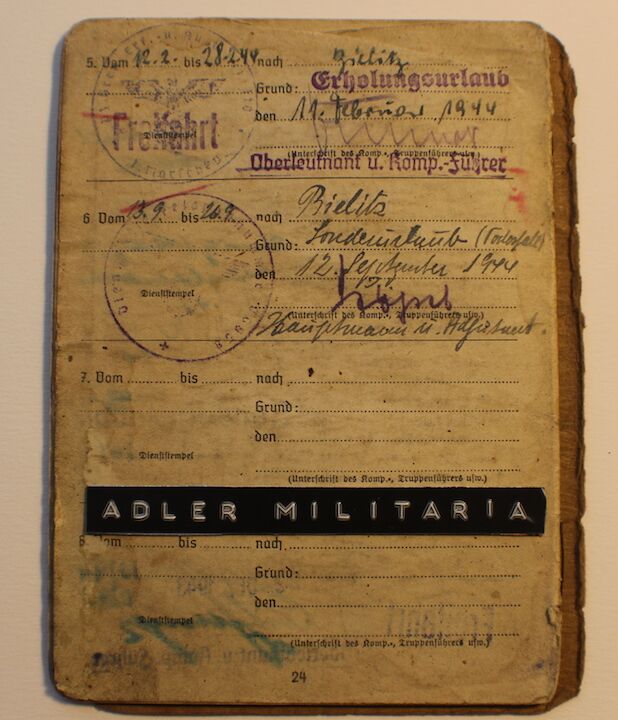 5. Vom 12.2. bis 28.2.44 nach Bielitz
Grund: Erholungsurlaub
den 11. Februar 1944
Freifahrt
Dienststempel
(Unterschrift des Komp.-, Truppenführers usw.)
Oberleutnant u. Komp.-Führer
6 Vom 13.9. bis 26.9. nach Bielitz
Grund: Sonderurlaub (Todesfall)
den 12. September 1944
Dienststempel
(Unterschrift des Komp.-, Truppenführers usw.)
Hauptmann u. Adjutant.
7. Vom bis nach
Grund:
den
Dienststempel
(Unterschrift des Komp.-, Truppenführers usw.)
ADLER MILITARIA
8. Vom bis nach
Grund:
den
Dienststempel
(Unterschrift des Komp.-, Truppenführers usw.)
24